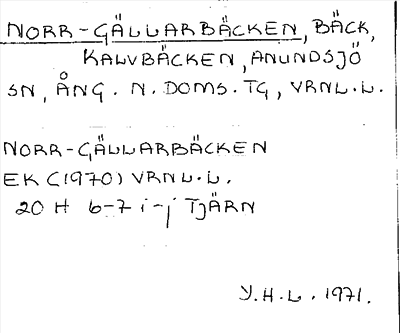 NORR-GÄLLARBÄCKEN, BÄCK,
KALVBÄCKEN, ANUNDSJÖ
SN, ÅNG. N. DOMS. TG, VRNL.L.
NORR-GÄLLARBÄCKEN
EK (1970) VRNL.L.
20 H 6-7 i-j TJÄRN
Y.H.L. 1971.